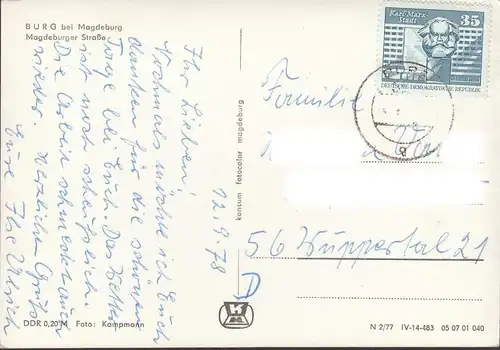 BURG bei Magdeburg
Magdeburger Straße
Ihr Lieben!
Nochmals möchte ich Euch
danken für die schönen
Tage bei Euch. Das Wetter
ist noch scheußlich.
Die Arbeit schmeckt auch
wieder. Herzlichen Gruß
Eure Ilse Ulrich
12.9.78
DDR 0,20 M Foto: Kampmann
konsum fotocolor magdeburg
Karl-Marx-Stadt
35
DEUTSCHE DEMOKRATISCHE REPUBLIK
Familie
56 Wuppertal 21
N 2/77 IV-14-483 05 07 01 040